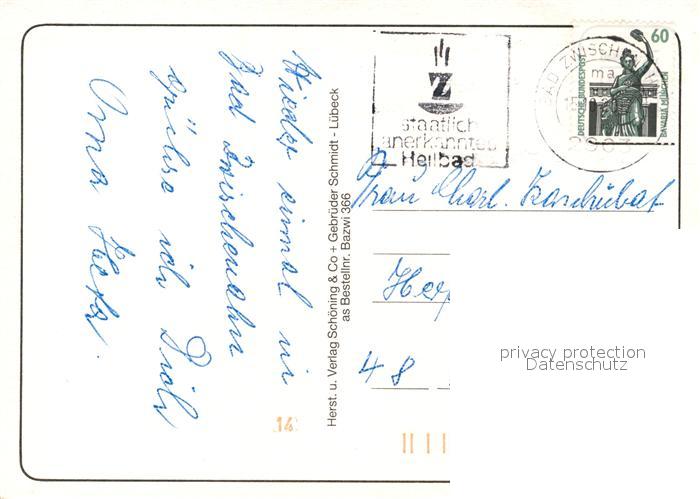 Wieder einmal in
Bad Zwischenahn
grüße ich Dich
Oma
Herst. u. Verlag Schöning & Co + Gebrüder Schmidt - Lübeck
as Bestellnr. Bazwi 366
Z
staatlich
anerkanntes
Heilbad
BAD ZWISCHEN
2903
60
DEUTSCHE BUNDESPOST
BAVARIA MÜNCHEN
Frau Charl.
48
14
privacy protection
Datenschutz